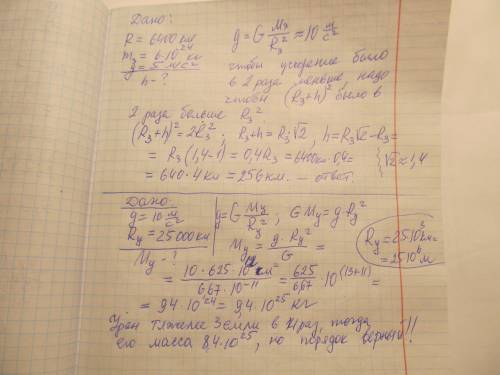 Дано:
R = 6400 км
m₃ = 6·10²⁴ км
g = 5 м/с²
h - ?
g = G M₃/R₃² ≈ 10 м/с²
чтобы ускорение было
в 2 раза меньше, надо
чтобы (R₃+h)² было в
2 раза больше R₃².
(R₃+h)² = 2R₃²; R₃+h = R₃√2, h = R₃√2 - R₃ =
= R₃(1,4-1) = 0,4R₃ = 6400км·0,4= { √2 ≈ 1,4
= 640·4км = 256км. — ответ.
Дано:
g = 10 м/с²
Rу = 25000 км
Mу - ?
g = G Mу/Rу²; GMу = g·Rу²
Mу = g·Rу²/G =
Rу = 25·10³км =
= 25·10⁶м
= 10·625·10¹² /6,67·10⁻¹¹ = 625/6,67 · 10^(13+11) =
= 94·10²⁴ = 9,4·10²⁵ кг
Уран тяжелее Земли в 14 раз, тогда
его масса 8,4·10²⁵, но порядок верный!!